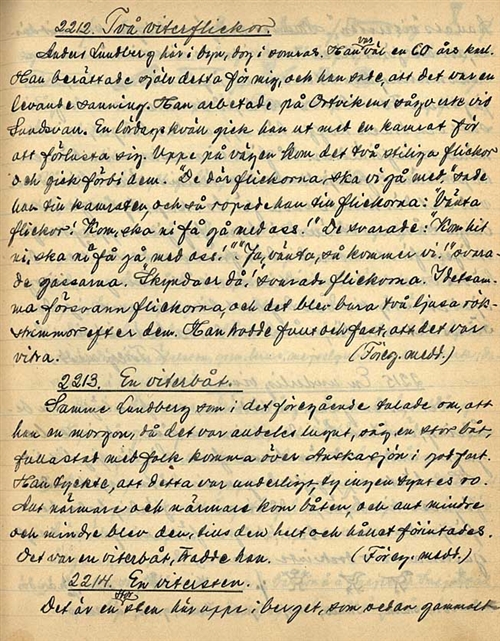 2212. Två viterflickor.
Anders Lundberg här i byn, dog i somras. Han var väl en 60 års karl.
Han berättade själv detta för mig, och han sade, att det var en
levande sanning. Han arbetade på Ortvikens sågverk vid
Sundsvall. En lördagskväll gick han ut med en kamrat för
att förlusta sig. Uppe på vägen kom det två stiliga flickor
och gick förbi dem. "De där flickorna ska vi gå med", sade
han till kamraten, och så ropade han till flickorna: "Vänta
flickor! Kom, ska ni få gå med oss!" De svarade: "Kom hit
ni, ska ni få gå med oss!" "Ja, vänta, så kommer vi!" svara-
de gossarna. "Skynda er då!" svarade flickorna. I detsam-
ma försvann flickorna, och det blev bara två ljusa rök-
strimmor efter dem. Han trodde fullt och fast, att det var
vitra. (Föreg. medd.)
2213. En viterbåt.
Samme Lundberg som i det föregående talade om, att
han en morgon, då det var alldeles lugnt, såg en stor båt,
fullastad med folk komma över sjön i god fart.
Han tyckte, att detta var underligt, ty ingen syntes ro.
Allt närmare och närmare kom båten, och allt mindre
och mindre blev den, tills den helt och hållet förintades.
Det var en viterbåt, trodde han. (Föreg. medd.)
2214. En vitersten.
Det är en stor sten här uppe i berget, som sedan gammalt